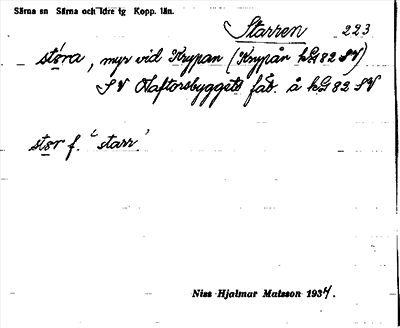 Särna sn Särna och Idre tg Kopp. län.
Starren 223
støra, myr vid Krypan (Krypån kG 82 SV)
SV Haftorsbyggets fäb. å kG 82 SV
stør f. "starr."
Niss Hjalmar Matsson 1934.